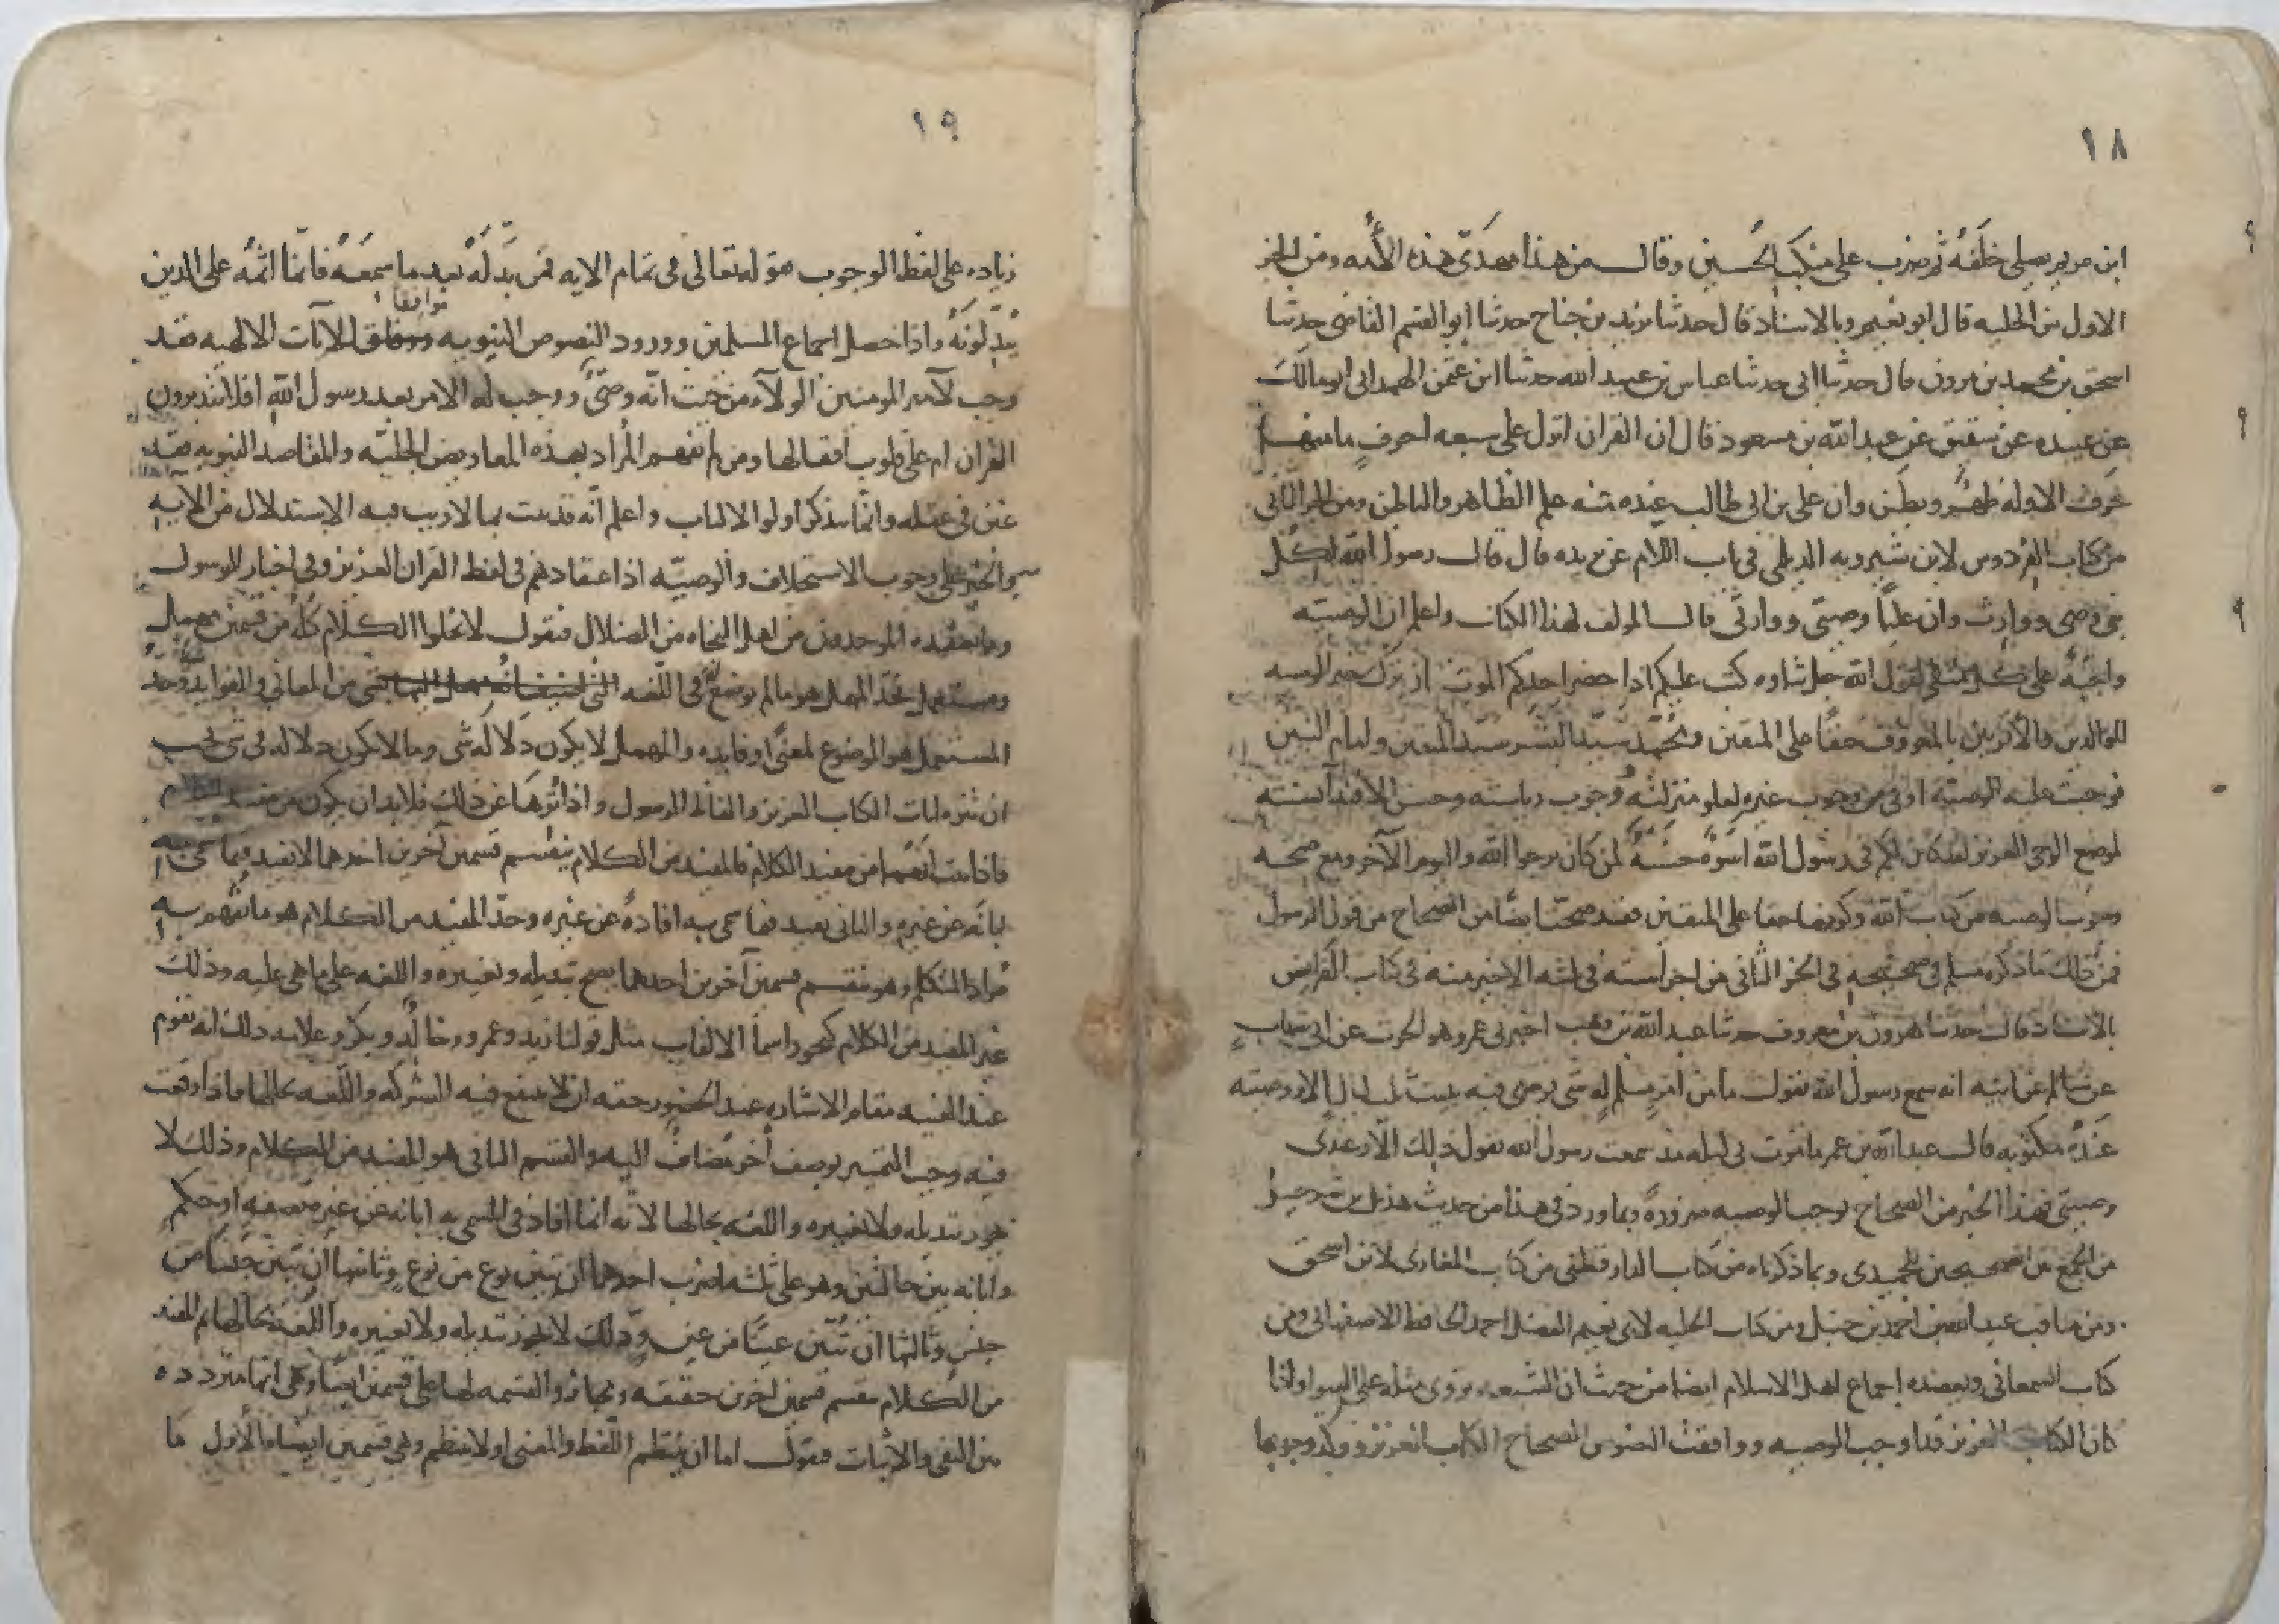 ١٨
ابن مريم يصلي خلفه ثم ضرب على منكب الحسين وقال من هذا مهدى هذه الأمه ومن الجز
الاول من الحليه قال ابو نعيم وبالاسناد قال حدثنا بن جناح حدثنا ابو القسم القاضى حدثنا
اسحق بن محمد بن مرون قال حدثنا ابى حدثنا عباس بن عبيد الله حدثنا ابن عثمن الهمدانى ابو مالك
عن عبيده عن شقيق عن عبد الله بن مسعود قال ان القران انزل على سبعه احرف ما منها
حرف الا وله ظهر وبطن وان على بن ابى طالب عنده منه علم الظاهر والباطن ومن الجز الثانى
من كتاب الفردوس لابن شيرويه الديلمى فى باب اللام عن بريده قال قال رسول الله لكل
نبى وصى ووارث وان عليا وصيى ووارثى قال المولف لهذا الكتاب واعلم ان الوصيه
واجبة على كل لقول الله جل ثناوه كتب عليكم اذا حضر احدكم الموت ان ترك خير الوصيه
للوالدين والأقربين بالمعروف حقا على المتقين ومحمد سيد البشر سيد المتقين وامام النبيين
فوجبت عليه الوصيه اوفى من وجوب غيره لعلو منزلته ووجوب رياسته وحسن الاقتدا بسنته
لموضع الوحى العزيز لقد كان لكم فى رسول الله اسوة حسنة لمن كان يرجوا الله واليوم الآخر ومع صحه
وجوب الوصيه من كتاب الله وكونها حقا على المتقين فقد صحت ايضا من الصحاح من قول الرسول
فمن ذلك ما ذكره مسلم فى صحيحه فى الجز الثانى من اجزا سته فى ثلثه الاخير منه فى كتاب الفرايض
بالاسناد قال حدثنا هرون بن معروف حدثنا عبد الله بن وهب اخبرنى عمرو هو الحرث عن ابن شهاب
عن سالم عن ابيه انه سمع رسول الله يقول ما من امرء مسلم له شى يوصى فيه يبيت ثلث ليال الا ووصيته
عنده مكتوبه قال عبد الله بن عمر ما مرت بى ليله مذ سمعت رسول الله يقول ذلك الا وعندى
وصيتى فهذا الخبر من الصحاح يوجب الوصيه ضرورة وبما ورد فى هذا من حديث هذيل بن شرحبيل
من الجمع بين الصحيحين للحميدى وبما ذكرناه من كتاب الدارقطنى من كتاب المغازى لابن اسحق
ومن مناقب عبد الله بن احمد بن حنبل ومن كتاب الحليه لابى نعيم الفضل احمد الحافظ الاصفهانى ومن
كتاب السمعانى ويعضده اجماع اهل الاسلام ايضا من حيث ان الشيعه تروى مثله على السوا واذا
كان الكتاب العزيز قد اوجب الوصيه ووافقت النصوص الصحاح الكتاب العزيز ووكد وجوبها
١٩
زياده على لفظ الوجوب قوله تعالى فى تمام الايه فمن بدله بعد ما سمعه فانما اثمه على الذين
يبدلونه واذا حصل اجماع المسلمين وورود النصوص النبويه موافقا الآيات الالهيه فقد
وجب لآمير المومنين الولآء من حيث انه وصى ووجب له الامر بعد رسول الله افلا يتدبرون
القران ام على قلوب اقفالها ومن لم يفهم المراد بهذه المعاريض الجليه والمقاصد النبويه فقد
غبن فى عقله وانما يتذكر اولوا الالباب واعلم انه قد ثبت بما لا ريب فيه الاستدلال من الآيه
والخبر على وجوب الاستخلاف والوصيه اذ اعتقادهم فى لفظ القران العزيز وفى اخبار الرسول
وما يعتقده الموحدون من اهل النجاه من الضلال فنقول لا يخلوا الكلام كله من قسمين مهمل
ومستعمل فحد المهمل هو ما لم يوضع فى اللغه لشى من المعانى والفوايد وحد
المستعمل هو الموضوع لمعنى او فايده والمهمل لا يكون دلالة شى وما لا يكون دلاله فى شى يجب
ان تنزه ايات الكتاب العزيز والفاظ الرسول واذا نزها عن ذلك فلا بد ان يكون من مفيد الكلام
فاذا ثبت انهما من مفيد الكلام فالمفيد من الكلام ينقسم قسمين آخرين احدهما لا يفيد فيما سمى به
ابانة عن غيره والثانى يفيد فيما سمى به افادة عن غيره وحد المفيد من الكلام هو ما يفهم به
مراد المتكلم وهو ينقسم قسمين آخرين احدهما يصح تبديله وتغييره واللغه على ما هى عليه وذلك
غير المفيد من الكلام كنحو اسما الالقاب مثل قولنا زيد وعمرو وخالد وبكر وعلامه ذلك انه يقوم
عند الغيبه مقام الاشاره عند الحضور حقه ان لا يقع فيه الشركه واللغه بحالها فاذا وقعت
فيه وجب التمييز بوصف آخر مضاف اليه والقسم الثانى هو المفيد من الكلام وذلك لا
يجوز تبديله ولا تغييره واللغه بحالها لانه انما افاد فى المسمى به ابانه عن غيره بصفه او حكم
وابانه بين حالتين وهو على ثلثه اضرب احدها ان يبين نوع من نوع وثانيها ان تبين جنسا من
جنس وثالثها ان تبين عينا من عين وذلك لا يجوز تبديله ولا تغييره واللغه بحالها ثم المفيد
من الكلام ينقسم قسمين اخرين حقيقه ومجاز والقسمه لهما على قسمين ايضا وهى انها مترددة
بين النفى والاثبات فنقول اما ان ينتظم اللفظ والمعنى او لا ينتظم وهى قسمين ايضا فالأول ما